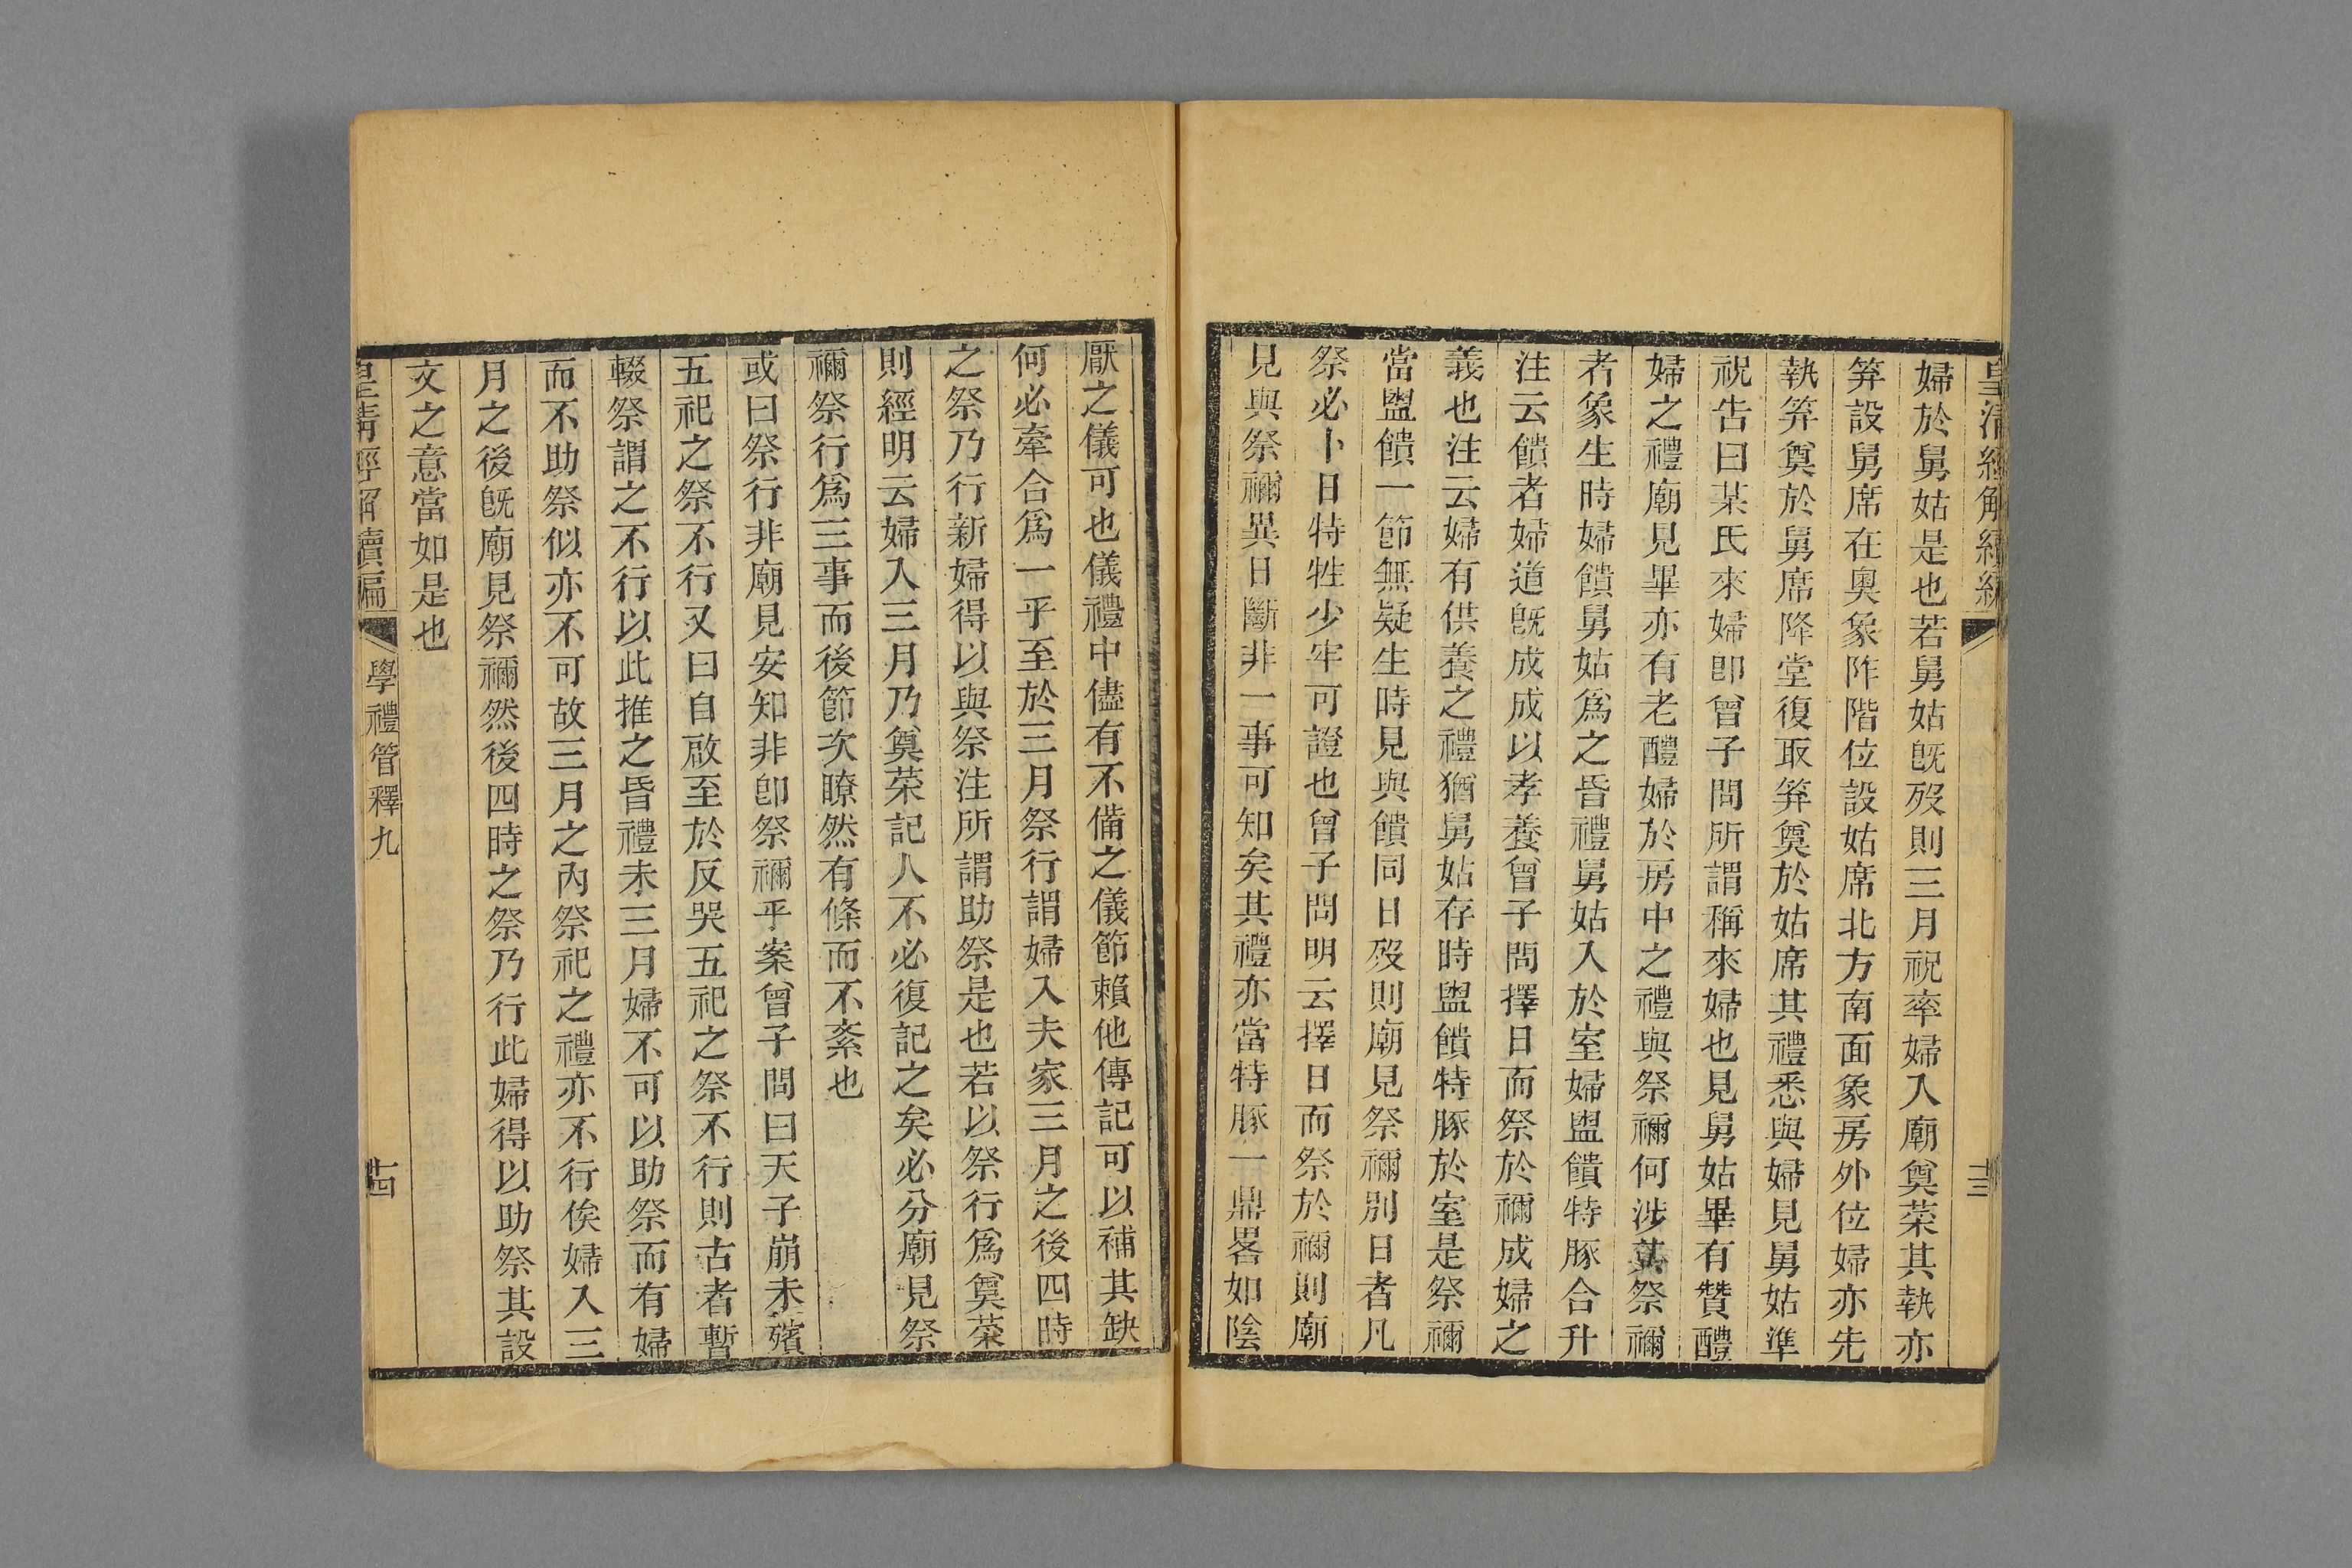 皇清經解續編
十三
婦於舅姑是也若舅姑旣歿則三月祝率婦入廟奠菜其執亦
笲設舅席在奧象阼階位設姑席北方南面象房外位婦亦先
執笲奠於舅席降堂復取笲奠於姑席其禮悉與婦見舅姑準
祝告曰某氏來婦卽曾子問所謂稱來婦也見舅姑畢有贊醴
婦之禮廟見畢亦有老醴婦於房中之禮與祭禰何涉其祭禰
者象生時婦饋舅姑爲之昏禮舅姑入於室婦盥饋特豚合升
注云饋者婦道旣成成以孝養曾子問擇日而祭於禰成婦之
義也注云婦有供養之禮猶舅姑存時盥饋特豚於室是祭禰
當盥饋一節無疑生時見與饋同日歿則廟見祭禰別日者凡
祭必卜日特牲少牢可證也曾子問明云擇日而祭於禰則廟
見與祭禰異日斷非一事可知矣其禮亦當特豚一鼎畧如陰
厭之儀可也儀禮中儘有不備之儀節賴他傳記可以補其缺
何必牽合爲一乎至於三月祭行謂婦入夫家三月之後四時
之祭乃行新婦得以與祭注所謂助祭是也若以祭行爲奠菜
則經明云婦入三月乃奠菜記人不必復記之矣必分廟見祭
禰祭行爲三事而後節次瞭然有條而不紊也
或曰祭行非廟見安知非卽祭禰乎案曾子問曰天子崩未殯
五祀之祭不行又曰自啟至於反哭五祀之祭不行則古者暫
輟祭謂之不行以此推之昏禮未三月婦不可以助祭而有婦
而不助祭似亦不可故三月之內祭祀之禮亦不行俟婦入三
月之後旣廟見祭禰然後四時之祭乃行此婦得以助祭其設
文之意當如是也
皇清經解續編
學禮管釋九
十四